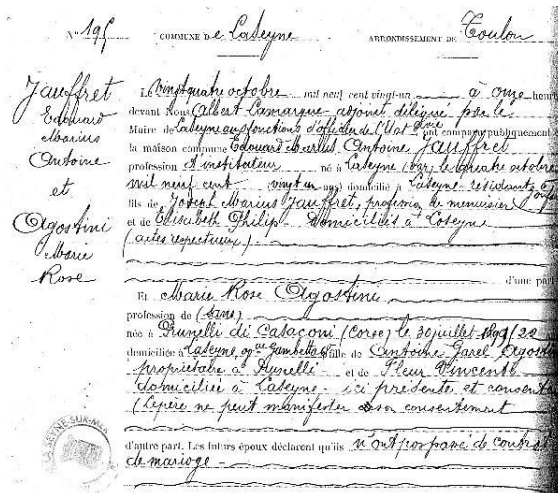 N° 195 COMMUNE De Laseyne ARRONDISSEMENT DE Toulon
Jauffret
Edouard
Marius
Antoine
et
Agostini
Marie
Rose
Le vingt quatre octobre mil neuf cent vingt-un à onze heur
devant Nous, Albert Lamarque adjoint délégué par le
Maire de Laseyne aux fonctions d'officier de l'Etat Civil ont comparu publiquement
la maison commune Edouard Marius Antoine Jauffret
profession d'instituteur né à Laseyne (Var) le octobre
mil neuf cent vingt un ans domicilié à Laseyne résidant à
fils de Joseph Marius Jauffret, profession de menuisier
et de Elisabeth Philip domiciliés à Laseyne
(actes respectueux)
d'une part
Et Marie Rose Agostini
profession de (sans)
née à Prunelli di Casaconi (Corse) le 30 juillet 1899/22
domiciliée à Laseyne, Gambetta fille de Antoine Agost
propriétaire à Prunelli et de Fleur Vincenti
domiciliée à Laseyne ici présente et consenta
(Le père ne peut manifester son consentement
d'autre part. Les futurs époux déclarent qu'ils n'ont pas passé de contrat
de mariage
LA SEYNE-SUR-MER